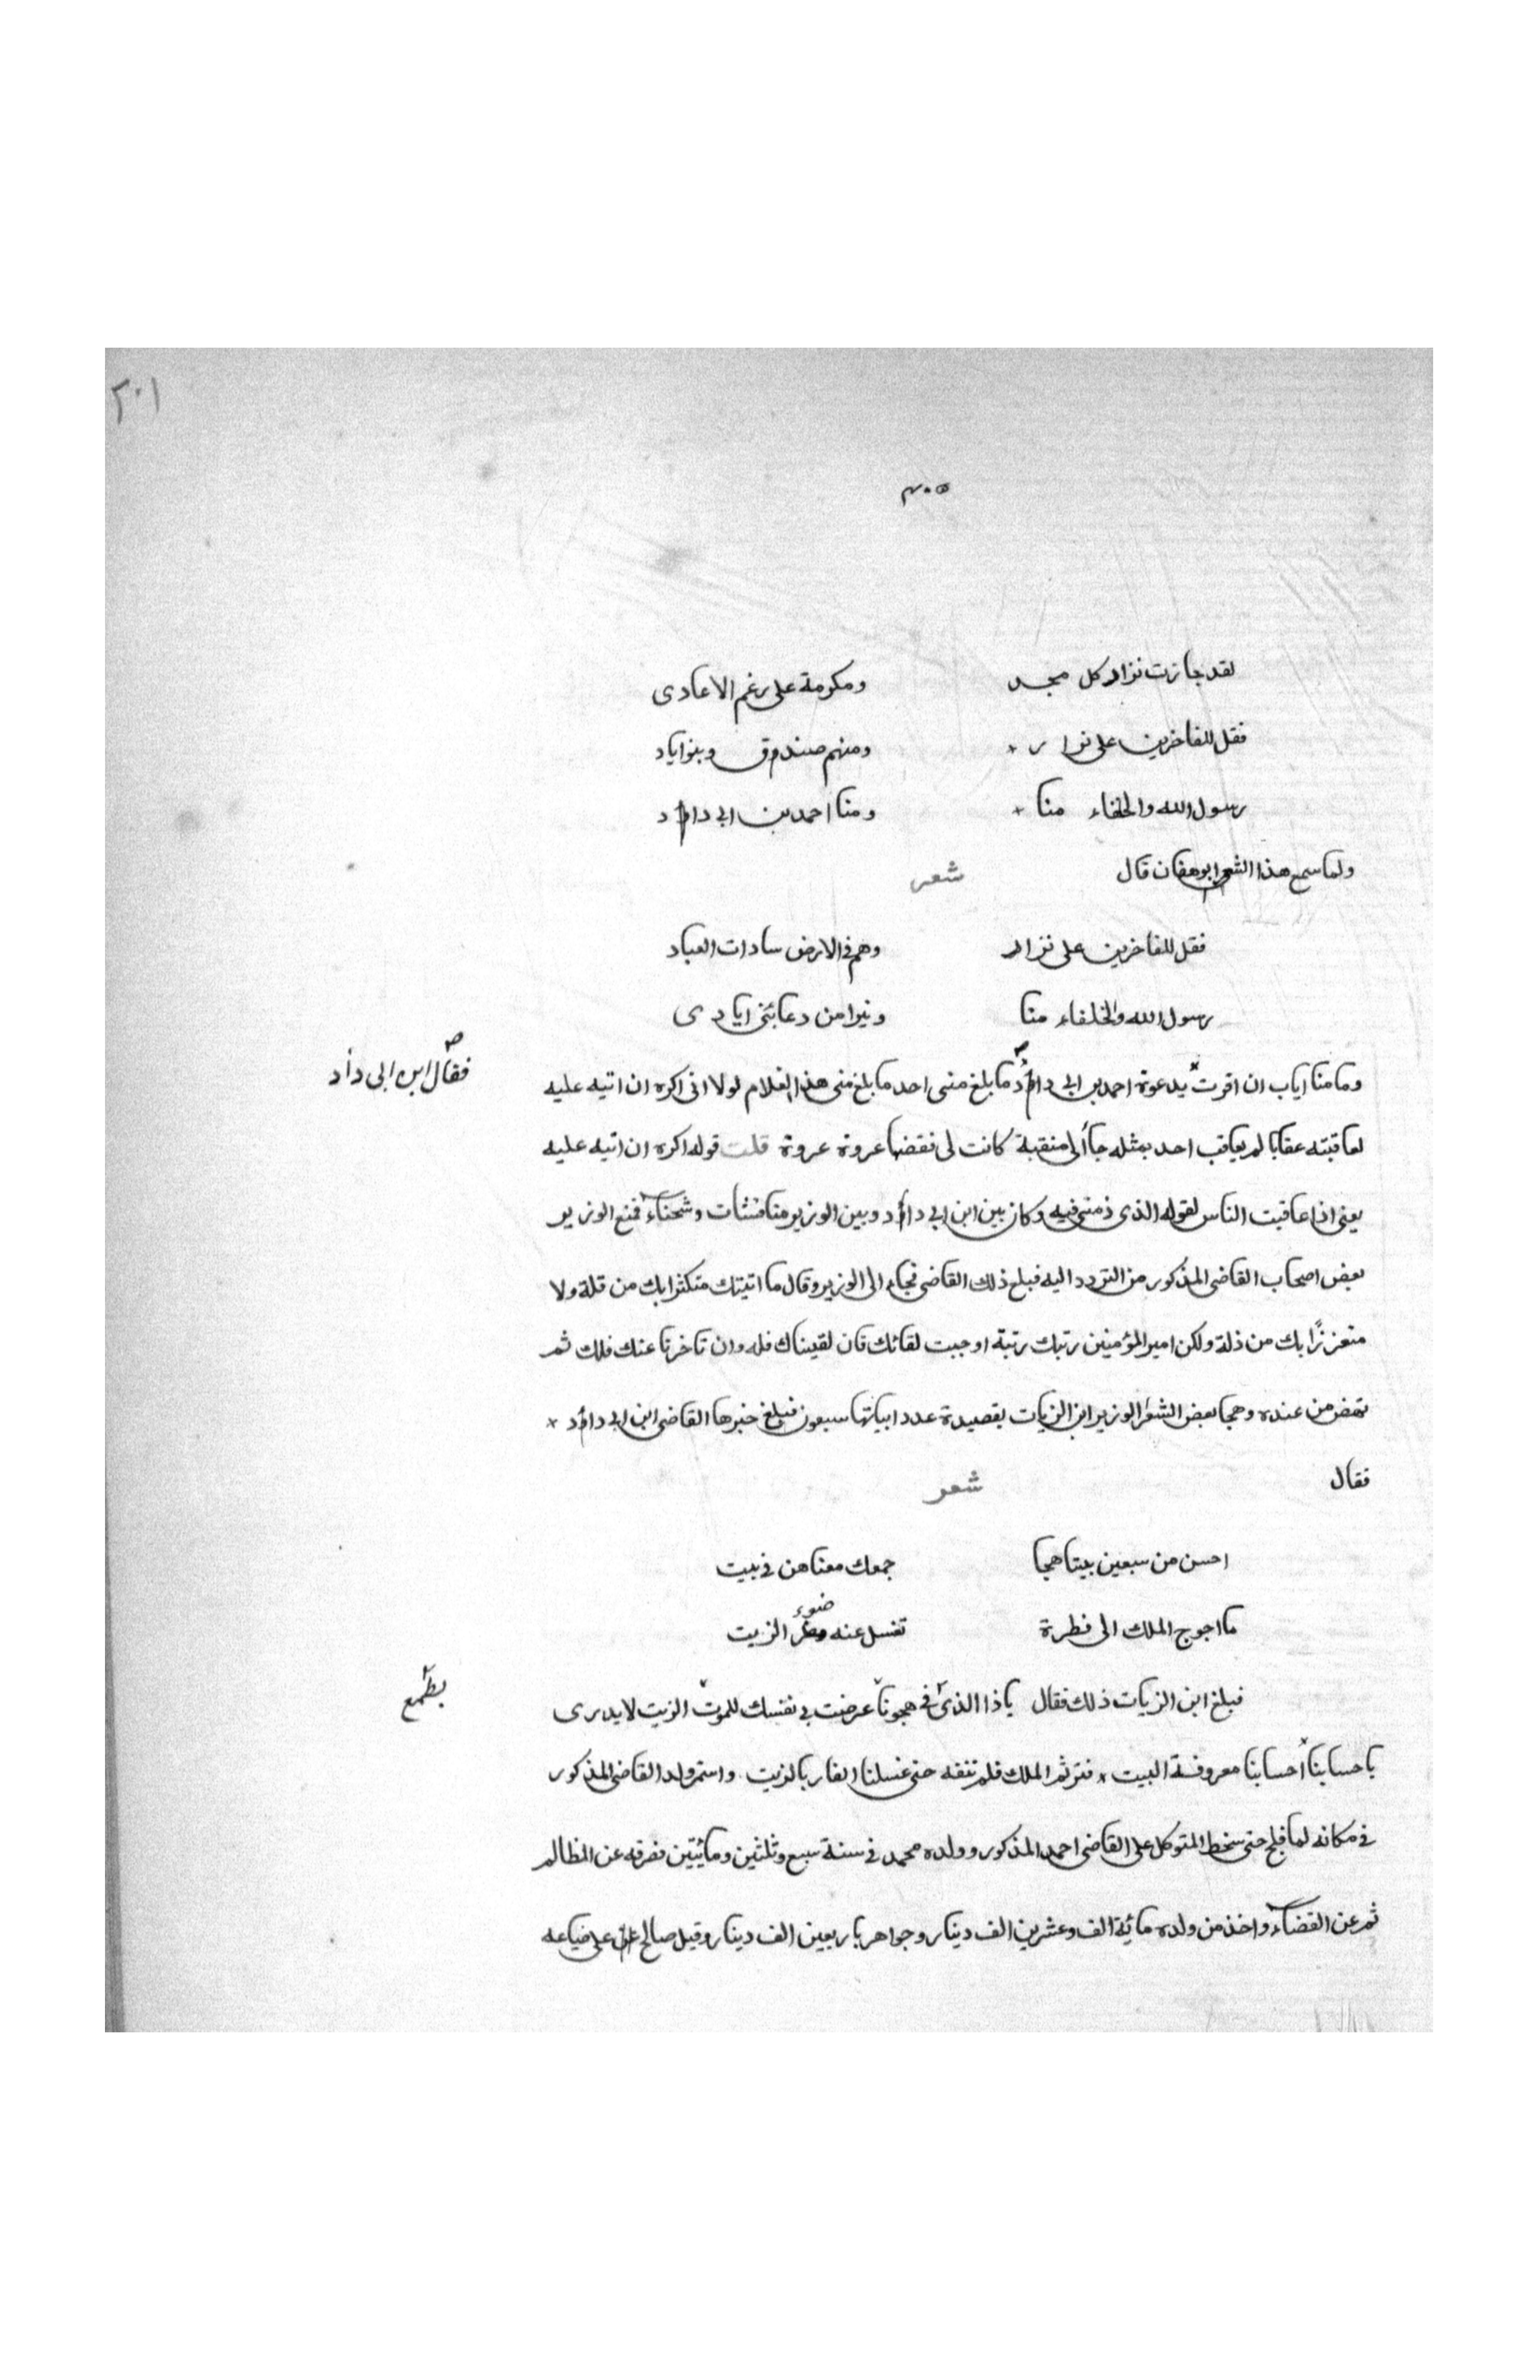 ٢٠١
٣٠٥
لقد جازت نزار كل مجد ومكرمة على رغم الاعادى
فقل للفاخرين على نزار ومنهم صندوق وبنو اياد
رسول الله والخلفاء منا ومنا احمد بن ابى داود
ولما سمع هذا الشعر ابو هفان قال شعر
فقل للفاخرين على نزار وهم فى الارض سادات العباد
رسول الله والخلفاء منا ونبرا من دعا بنى ايادى
وما منا اياب ان اقرت بدعوة احمد بن ابى داود ما بلغ منى احد ما بلغ منى هذا الغلام لولا انى اكره ان انبه عليه
فقال ابن ابى دأد
لعاقبته عقابا لم يعاقب احد بمثله جاء الى منقبة كانت لى فنقضها عروة عروة قلت قوله اكره ان انبه عليه
يعنى اذا عاقبت الناس لقوله الذى ذمنى فيه وكان بين ابن ابى دأود وبين الوزير منافشات وشحناء فمنع الوزير
بعض اصحاب القاضى المذكور من التردد اليه فبلغ ذلك القاضى فجاء الى الوزير وقال ما اتيتك متكثرا بك من قلة ولا
متعززًا بك من ذلة ولكن امير المؤمنين رتبك رتبة اوجبت لقائك فان لقيناك فله وان تاخرنا عنك فلك ثم
نهض من عنده وهجا بعض الشعرا الوزير ابن الزيات بقصيدة عدد ابياتها سبعون فبلغ خبرها القاضى ابن ابى دأود
فقال شعر
احسن من سبعين بيتا هجا جمعك معناهن فى بيت
ما احوج الملك الى قطرة تغسل عنه ضوء الزيت
فبلغ ابن الزيات ذلك فقال ياذا الذى فى هجونا عرضت بى نفسك للموت الزيت لا يدرى
بطمع
باحسابنا أحسابنا معروفة البيت فتر ثم الملك فلم ننقه حتى غسلنا الفار بالزيت واستمر ولد القاضى المذكور
فى مكانه لما فلج حتى سخط المتوكل على القاضى احمد المذكور وولده محمد فى سنة سبع وثلثين ومأيتين فصرفه عن المظالم
ثم عن القضاء واخذ من ولده مائة الف وعشرين الف دينار وجواهر باربعين الف دينار وقيل صالح على ضياعه